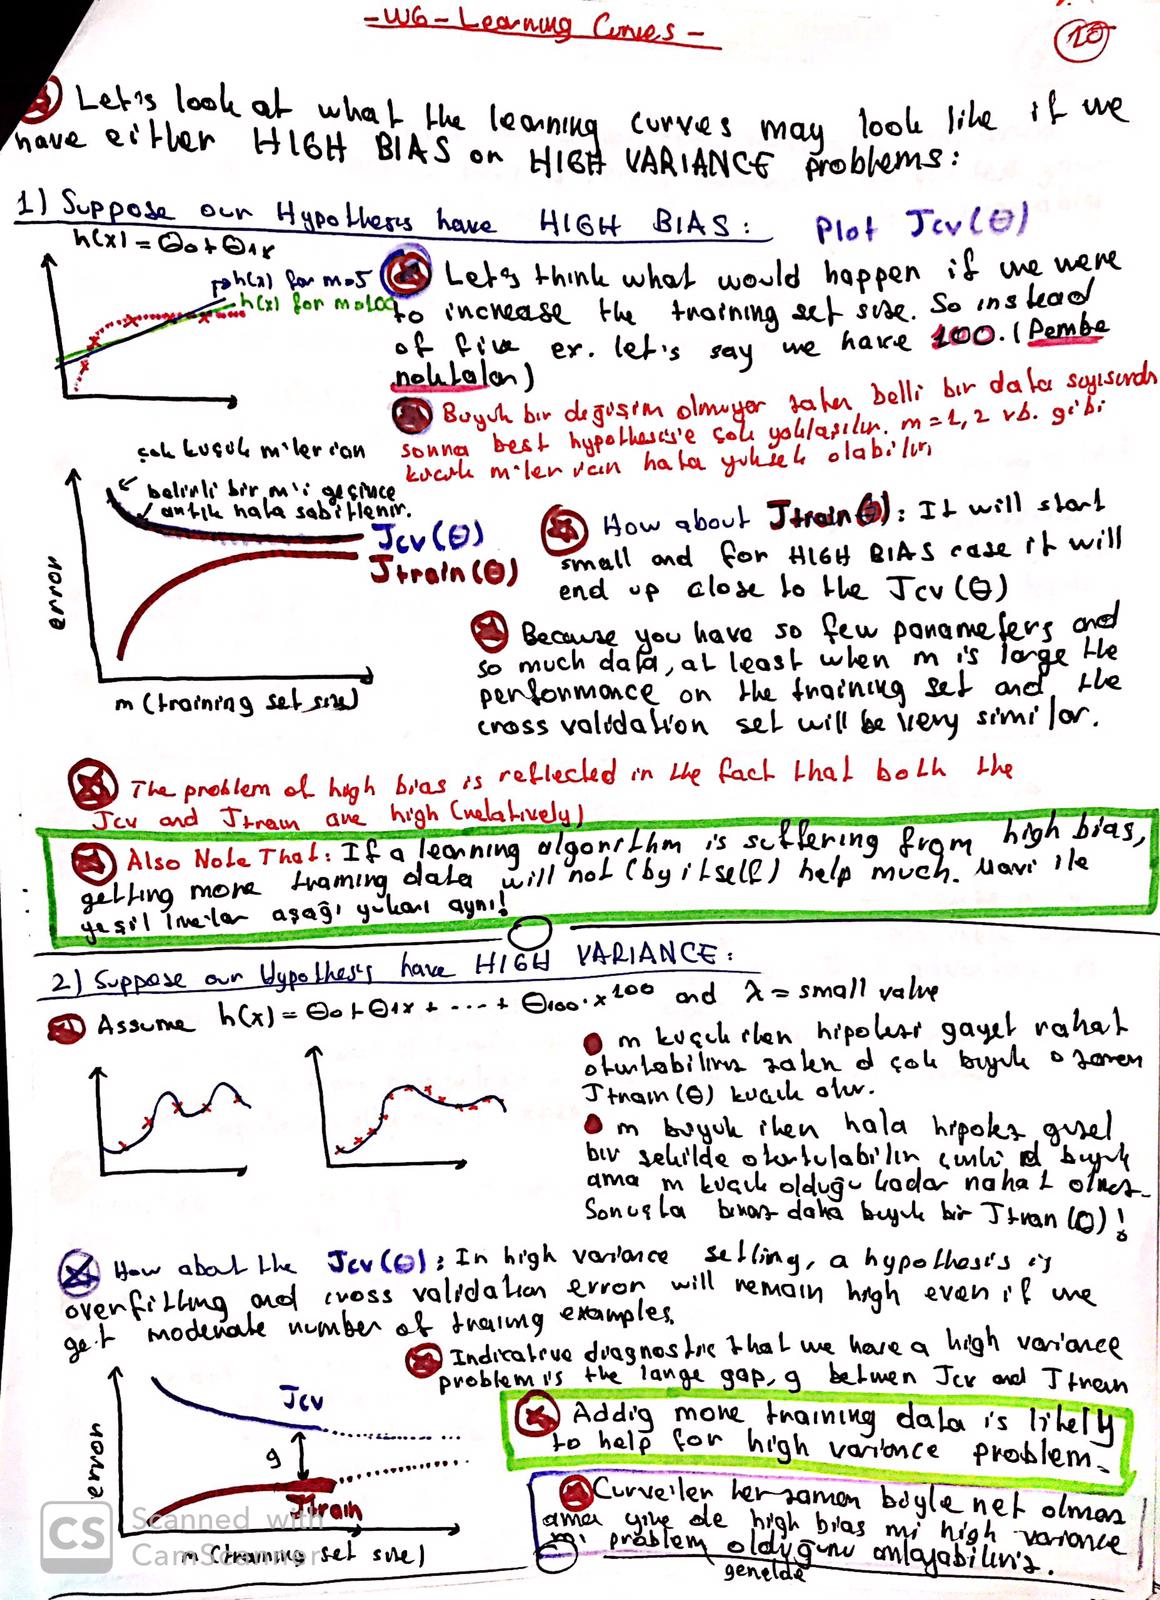 -W6-Learning Curves-
20
Let's look at what the learning curves may look like if we
have either HIGH BIAS or HIGH VARIANCE problems:
1) Suppose our Hypothesis have HIGH BIAS: Plot Jcv(θ)
h(x) = θ0 + θ1x
h(x) for m=5
h(x) for m=100
Let's think what would happen if we were
to increase the training set size. So instead
of five ex. let's say we have 100. (Pembe
noktalar)
Büyük bir değişim olmuyor zaten belli bir data sayısından
sonra best hypothesis'e çok yaklaşılır. m=1,2 vb. gibi
küçük m'ler için hata yüksek olabilir
çok küçük m'ler için
belirli bir m'i geçince
artık hata sabitlenir.
Jcv(θ)
Jtrain(θ)
error
m (training set size)
How about Jtrain(θ): It will start
small and for HIGH BIAS case it will
end up close to the Jcv(θ)
Because you have so few parameters and
so much data, at least when m is large the
performance on the training set and the
cross validation set will be very similar.
The problem of high bias is reflected in the fact that both the
Jcv and Jtrain are high (relatively)
Also Note That: If a learning algorithm is suffering from high bias,
getting more training data will not (by itself) help much. Mavi ile
yeşil line'lar aşağı yukarı aynı!
2) Suppose our Hypothesis have HIGH VARIANCE:
Assume h(x) = θ0 + θ1x + .... + θ100.x^100 and λ = small value
m küçük iken hipotezi gayet rahat
oturtabiliriz zaten d çok büyük o zaman
Jtrain(θ) küçük olur.
m büyük iken hala hipotez güzel
bir şekilde oturtulabilir çünkü d büyük
ama m küçük olduğu kadar rahat olmaz.
Sonuçta biraz daha büyük bir Jtrain(θ)!
How about the Jcv(θ): In high variance setting, a hypothesis is
overfitting and cross validation error will remain high even if we
get moderate number of training examples.
Indicative diagnostic that we have a high variance
problem is the large gap, g betwen Jcv and Jtrain
Jcv
g
Jtrain
error
m (training set size)
Addig more training data is likely
to help for high variance problem.
Curve'ler her zaman böyle net olmaz
ama yine de high bias mı high variance
mı problem olduğunu anlayabiliriz.
genelde
CS
Scanned with
CamScanner